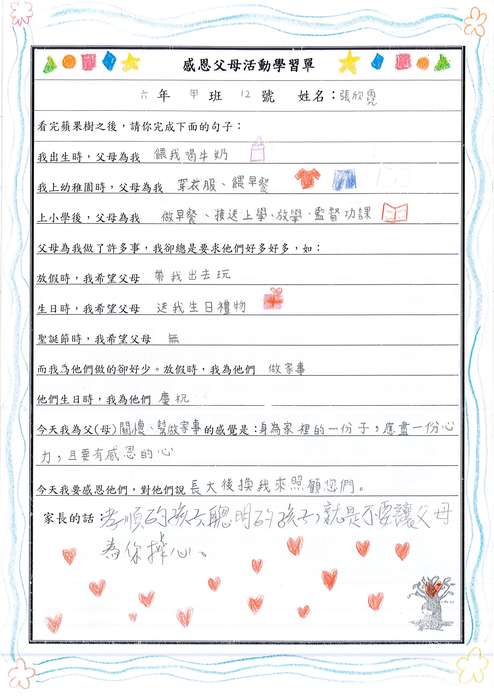 感恩父母活動學習單
六年 甲班 12號 姓名：張欣
看完蘋果樹之後，請你完成下面的句子：
我出生時，父母為我 餵我喝牛奶
我上幼稚園時，父母為我 穿衣服、餵早餐
上小學後，父母為我 做早餐、接送上學、放學、監督功課
父母為我做了許多事，我卻總是要求他們好多好多，如：
放假時，我希望父母 帶我出去玩
生日時，我希望父母 送我生日禮物
聖誕節時，我希望父母 無
而我為他們做的卻好少。放假時，我為他們 做家事
他們生日時，我為他們 慶祝
今天我為父(母) 、幫做家事的感覺是：身為家裡的一份子，應盡一份心
力，且要有感恩的心
今天我要感恩他們，對他們說 長大後換我來照顧您們。
家長的話：孝順的孩子聰明的孩子，就是不要讓父母
為你掉心。